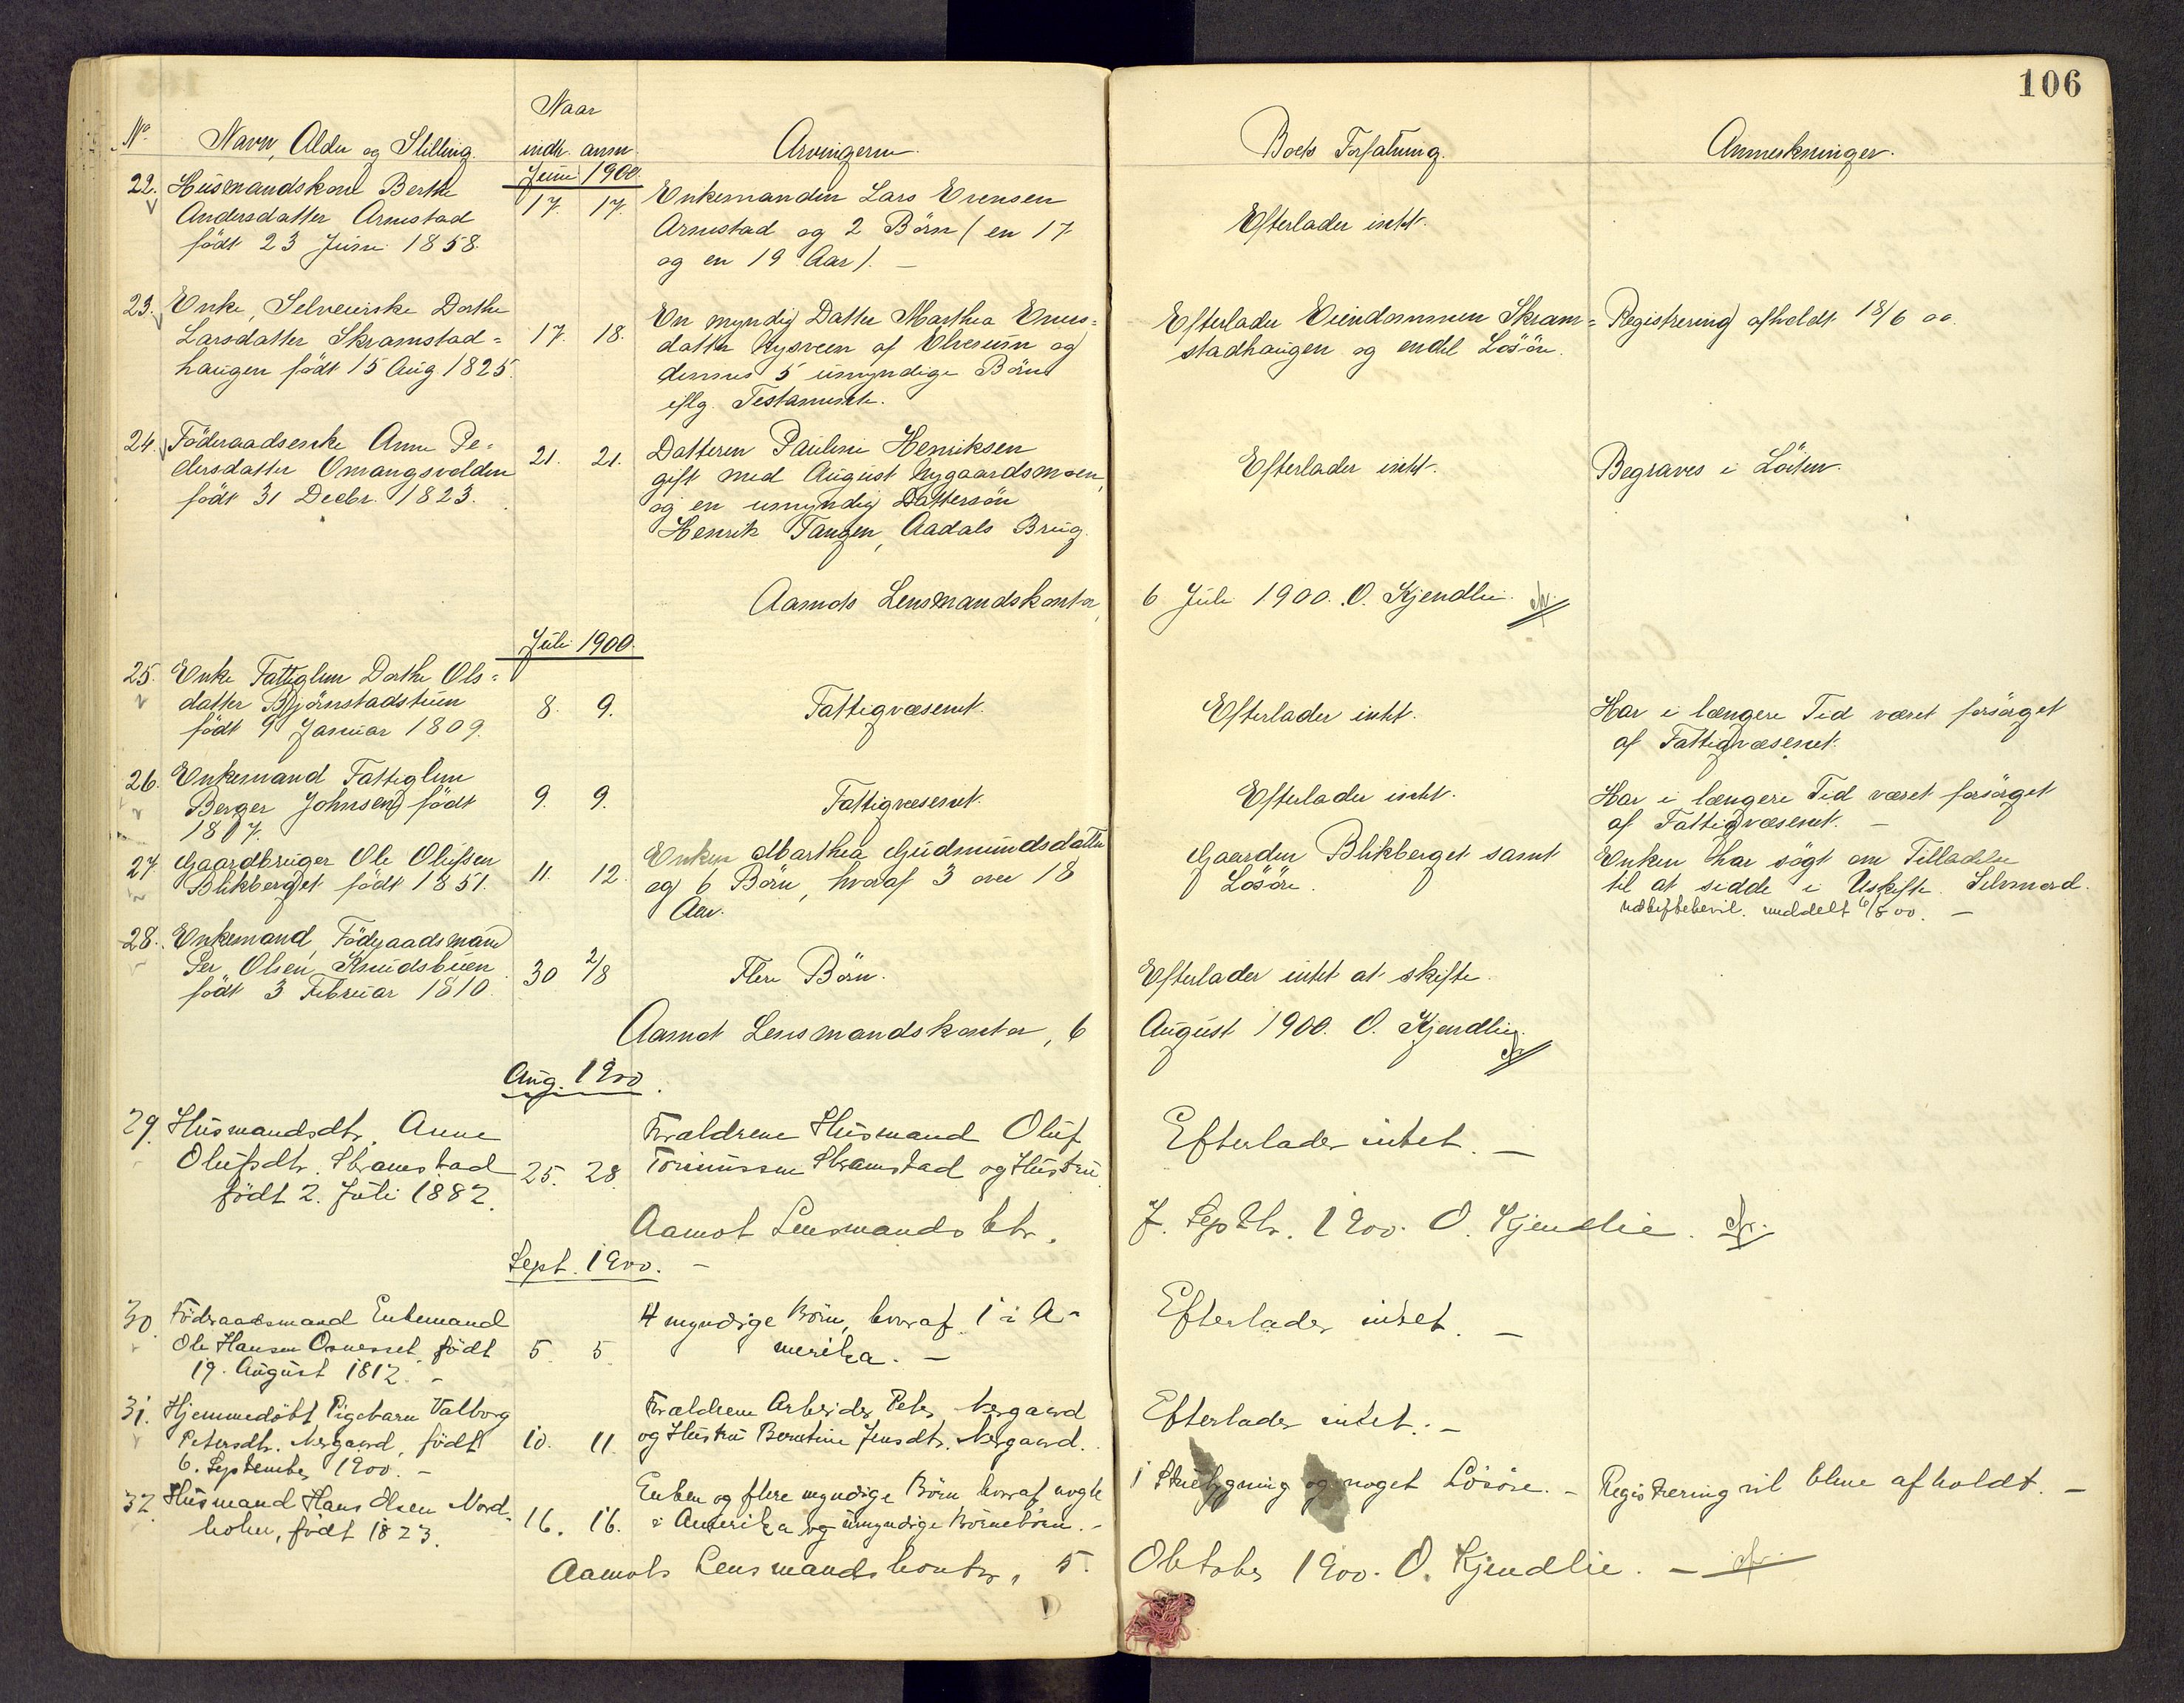 106
Naar
No. Navn, Alder og Stilling. indtr. anm. Arvingerne. Boets Forfatning. Anmerkninger.
Juni 1900.
22. Husmandskone Berthe
Andersdatter Arnestad
født 23 Juni 1858.
17. 17.
Enkemanden Lars Evensen
Arnestad og 2 Börn (en 17
og en 19 Aar). —
Efterlader intet.
23. Enke, Selveierske Dorthe
Larsdatter Skramstad=
haugen født 15 Aug 1825.
17. 18.
En myndig Datter Marthea
datter af Elverum og
dennes 5 umyndige Börn
iflg. Testamente.
Efterlader Eiendommen Skram=
stadhaugen og endel Lösöre.
Registrering afholdt 18/6 00.
24. Föderaadsenke Anne Pe=
dersdatter Omangsvolden
født 31 Decbr. 1823.
21. 21.
Datteren Pauline Henriksen
gift med August Nygaardsmoen,
og en umyndig Dattersön
Henrik Tangen, Aadals Brug.
Efterlader intet.
Begraves i Löiten.
Aamots Lensmandskontor, 6 Juli 1900. O. Kjendlie.
Juli 1900.
25. Enke Fattiglem Dorthe Ols=
datter Björnstadstuen
født 9 Januar 1809.
8. 9.
Fattigvæsenet.
Efterlader intet.
Har i længere Tid været forsörget
af Fattigvæsenet.
26. Enkemand Fattiglem
Berger Johnsen født
1817.
9. 9.
Fattigvæsenet.
Efterlader intet.
Har i længere Tid været forsörget
af Fattigvæsenet. —
27. Gaardbruger Ole Olufsen
Blikberget født 1851.
11. 12.
Enken Marthea Gudmundsdatter
og 6 Börn, hvoraf 3 over 18
Aar.
Gaarden Blikberget samt
Lösöre.
Enken har sögt om Tilladelse
til at sidde i Uskifte. Selvmord.
meddelt 6/8 00. —
28. Enkemand, Föderaadsmand
Per Olsen Knudsbuen
født 3 Februar 1810.
30 2/8
Flere Börn.
Efterlader intet at skifte.
Aamot Lensmandskontor, 6 August 1900. O. Kjendlie.
Aug. 1900.
29. Husmandsdtr. Anne
Olufsdtr. Skramstad
født 2. Juli 1882.
25. 28.
Forældrene Husmand Oluf
Skramstad og Hustru.
Efterlader intet. —
Aamot Lensmandsktr. 7. Septbr. 1900. O. Kjendlie.
Sept. 1900. —
30. Föderaadsmand Enkemand
Ole Hansen Osneset født
19. August 1812. —
5. 5.
4 myndige Börn, hvoraf 1 i A-
merika. —
Efterlader intet. —
31. Hjemmedöbt Pigebarn Valborg
Petersdtr. Nergaard, født
6. September 1900. —
10. 11.
Forældrene Arbeider Peter Nergaard
og Hustru Berntine Jensdtr. Nergaard.
Efterlader intet. —
32. Husmand Hans Olsen Nord-
holen, født 1823.
16. 16.
Enken og flere myndige Börn hvoraf nogle
i Amerika og umyndige Börnebörn. —
og noget Lösöre. —
Registrering vil blive afholdt. —
Aamots Lensmandskontor, 5. Oktober 1900. O. Kjendlie. —